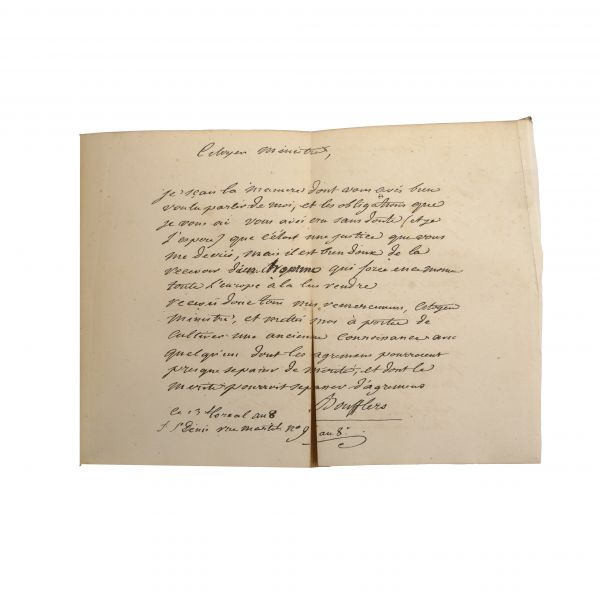 Citoyen ministre,
je scais la maniere dont vous avés bien
voulu parler de moi, et les obligations que
je vous ai vous avés cru sans doute (et je
l'espere) que c'étoit une justice que vous
me deviés, mais il est bien doux de la
recevoir d'un homme qui force en ce moment
toute l'europe à la lui rendre
recevés donc tous mes remerciemens, citoyen
ministre, et mettés moi à portée de
cultiver une ancienne connoissance avec
quelqu'un dont les agremens pourroient
presque se passer de merite, et dont le
merite pourroit se passer d'agremens
Boufflers
ce 13 floreal an 8
f. St Denis rue martel no 9 an 8